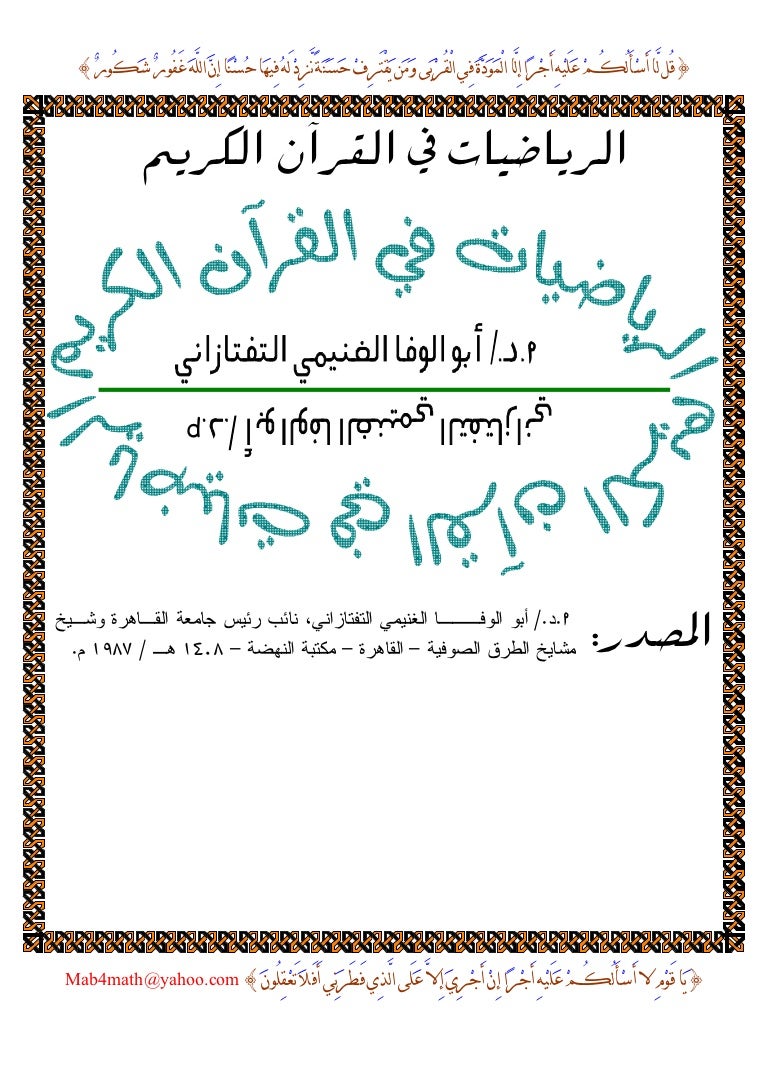 ﴿ قُل لَّا أَسْأَلُكُمْ عَلَيْهِ أَجْرًا إِلَّا الْمَوَدَّةَ فِي الْقُرْبَى وَمَن يَقْتَرِفْ حَسَنَةً نَّزِدْ لَهُ فِيهَا حُسْنًا إِنَّ اللَّهَ غَفُورٌ شَكُورٌ ﴾
الرياضيات في القرآن الكريم
الرياضيات في القرآن الكريم
أ.د./ أبو الوفا الغنيمي التفتازاني
أ.د./ أبو الوفا الغنيمي التفتازاني
الرياضيات في القرآن الكريم
المصدر: أ.د./ أبو الوفـــــــا الغنيمي التفتازاني، نائب رئيس جامعة القـــاهرة وشـــيخ
مشايخ الطرق الصوفية – القاهرة – مكتبة النهضة – ١٤٠٨ هـــ / ١٩٨٧ م.
﴿ يَا قَوْمِ لا أَسْأَلُكُمْ عَلَيْهِ أَجْرًا إِنْ أَجْرِيَ إِلاَّ عَلَى الَّذِي فَطَرَنِي أَفَلاَ تَعْقِلُونَ ﴾ Mab4math@yahoo.com